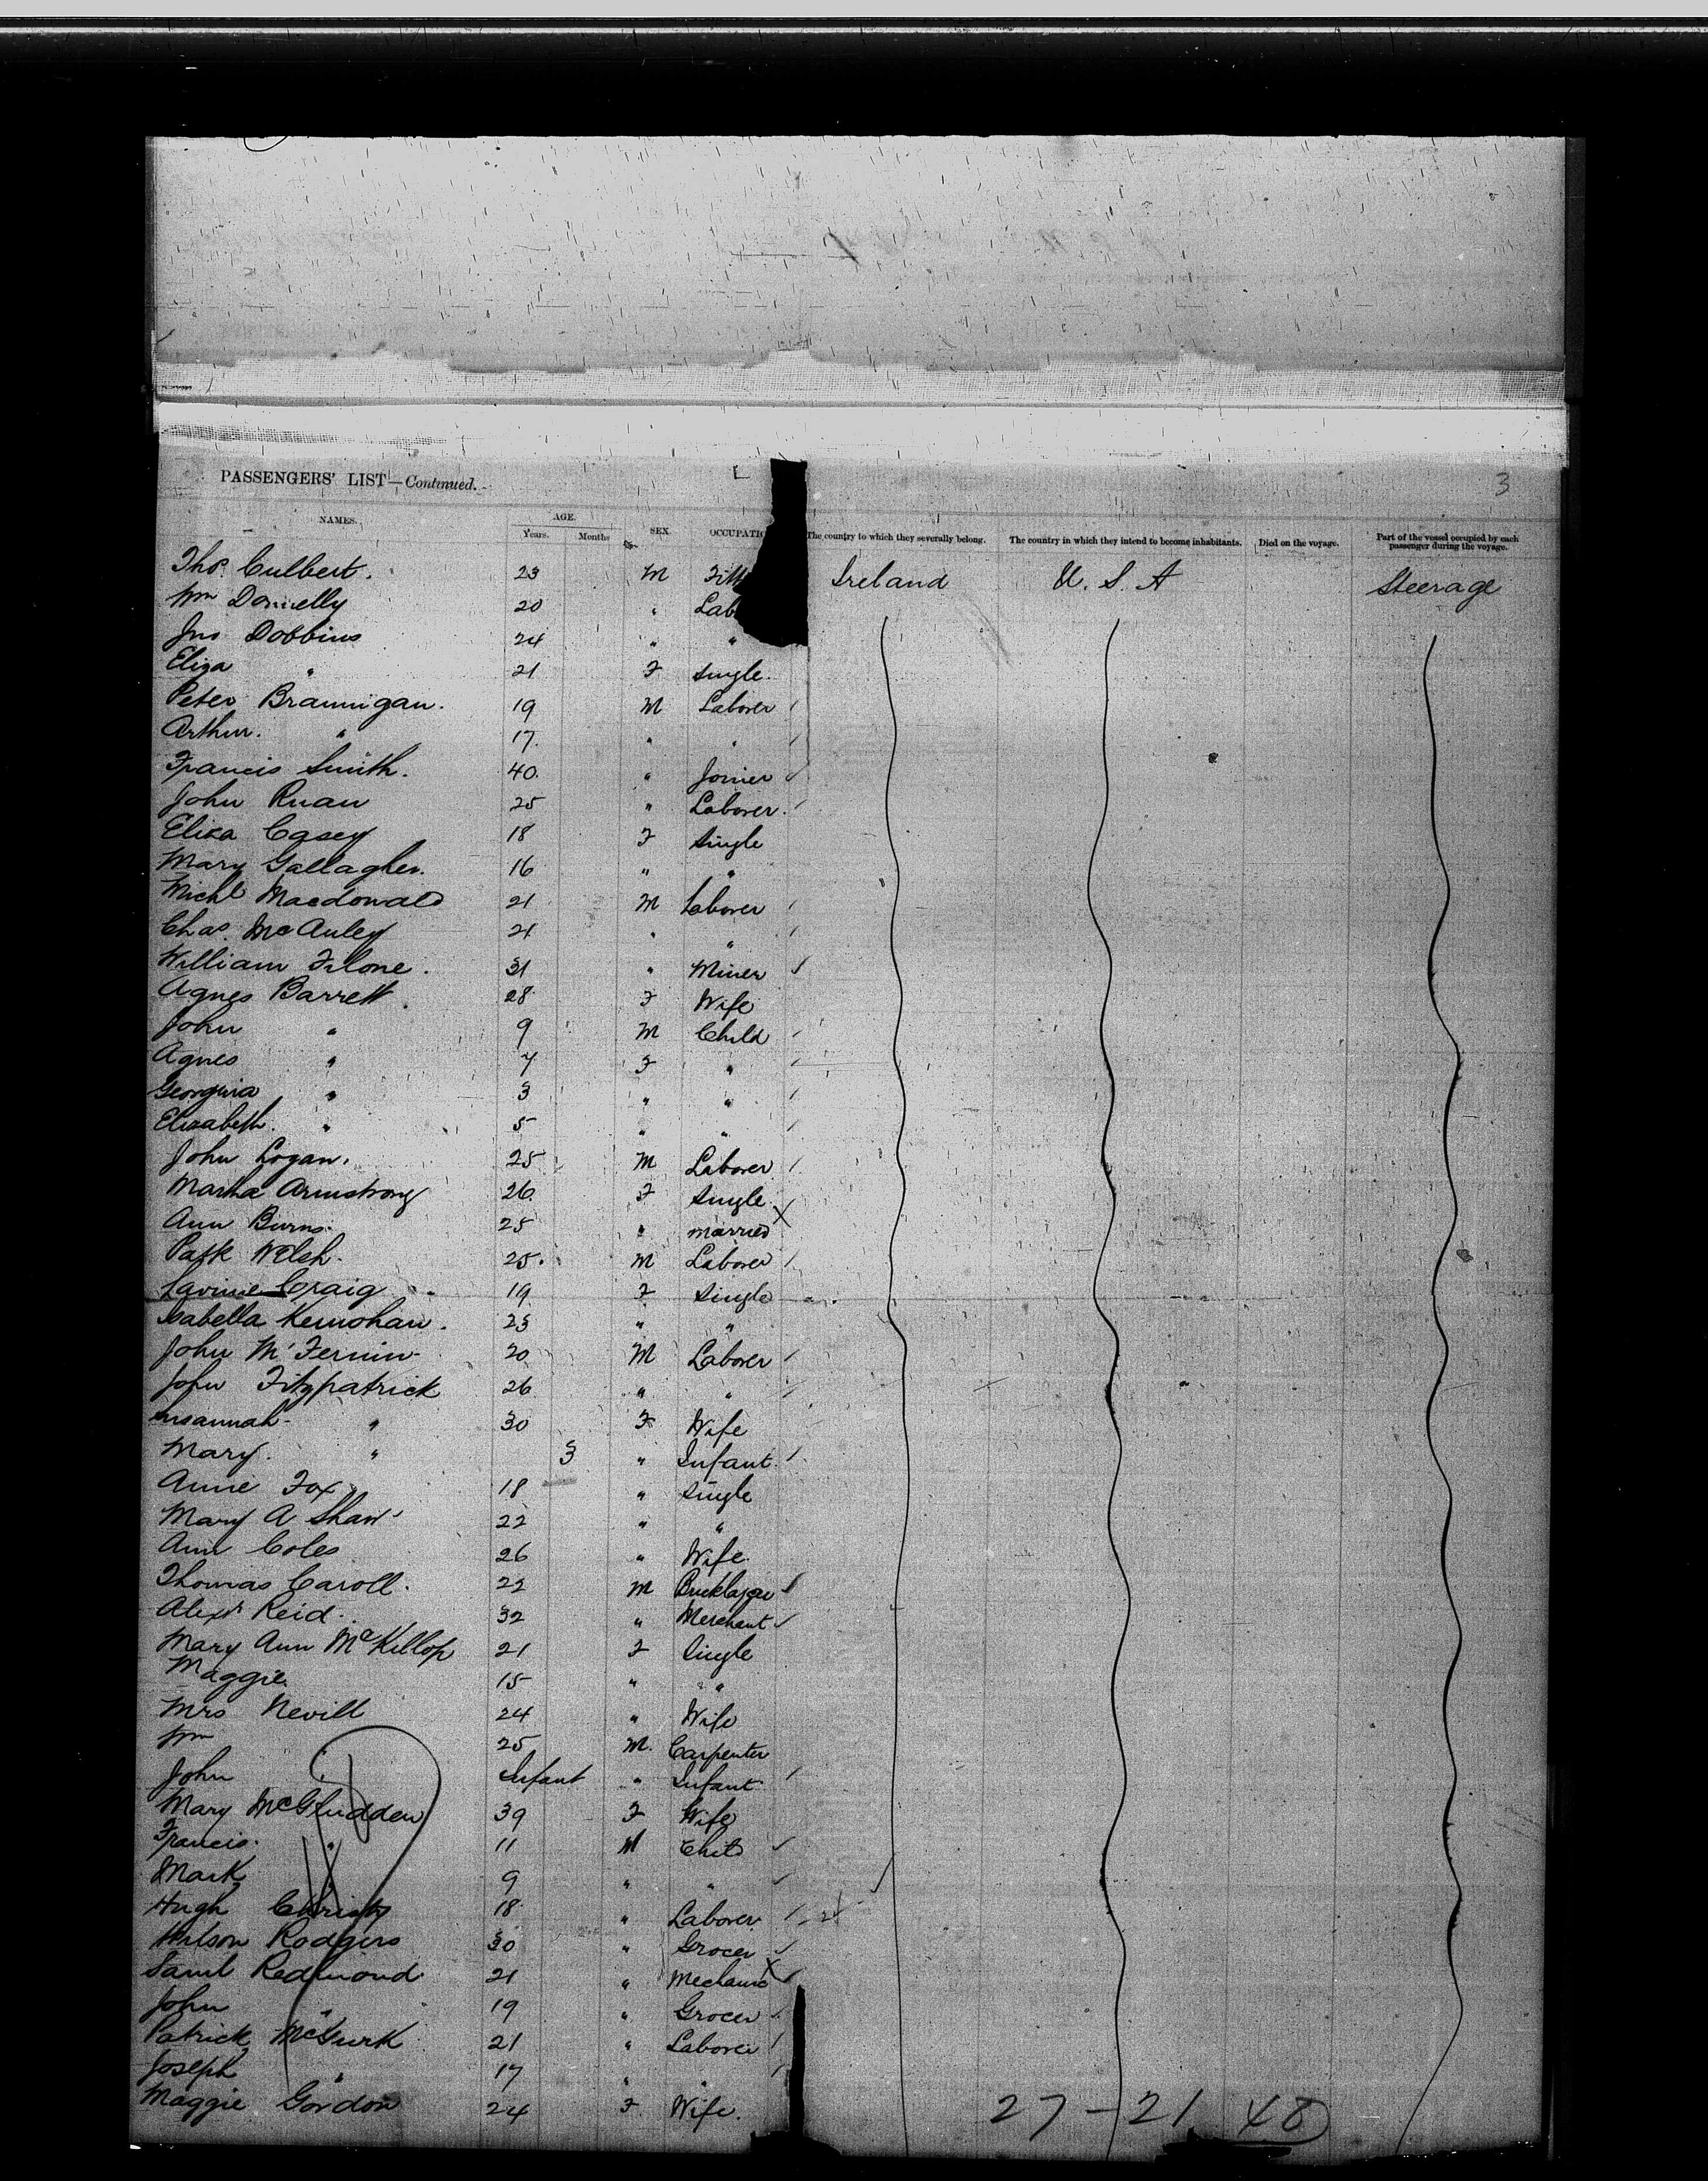 PASSENGERS' LIST—Continued.
3
NAMES. AGE. Years. Months SEX. OCCUPATIO The country to which they severally belong. The country in which they intend to become inhabitants. Died on the voyage. Part of the vessel occupied by each passenger during the voyage.
Thos. Culbert. 23 M Fitt Ireland U. S. A Steerage
Wm Donnelly 20 " Lab
Jno Dobbins 24 " "
Eliza " 21 F Single.
Peter Brannigan. 19 M Laborer
Arthur. " 17. " "
Francis Smith. 40. " Joiner
John Ruan 25 " Laborer.
Eliza Casey 18 F Single
Mary Gallagher. 16 " "
Michl Macdonald 21 M Laborer
Chas. McAuley 21 " "
William . 31 " Miner
Agnes Barrett. 28 F Wife
John " 9 M Child
Agnes " 7 F "
Georgina " 3 " "
Elizabeth. " 5 " "
John Logan. 25 M Laborer
Armstrong 26 F Single
Ann Burns. 25 " married
Patk Welsh. 25. M Laborer
Lavinie Craig 19 F Single
Isabella Kernohan. 23 " "
John 20 M Laborer
John Fitzpatrick 26 " "
Susannah " 30 F Wife
Mary. " 3 " Infant.
Annie Fox. 18 " Single
Mary A Shaw 22 " "
Ann Coles 26 " Wife.
Thomas Caroll. 22 M Bricklayer
Alexr Reid. 32 " Merchant
Mary Ann McKillop 21 F Single
Maggie. 15 " "
Mrs Nevill 24 " Wife
Wm " 25 M. Carpenter
John " Infant " Infant.
Mary McGludden 39 F Wife
Francis. " 11 M Child
Mark " 9 " "
Hugh Christy 18 " Laborer
Wilson Rodgers 30 " Grocer
Saml Redmond 21 " Mechanic
John " 19 " Grocer
Patrick McGurk 21 " Laborer
Joseph " 17 " "
Maggie Gordon 24 F. Wife.
27 - 21 48